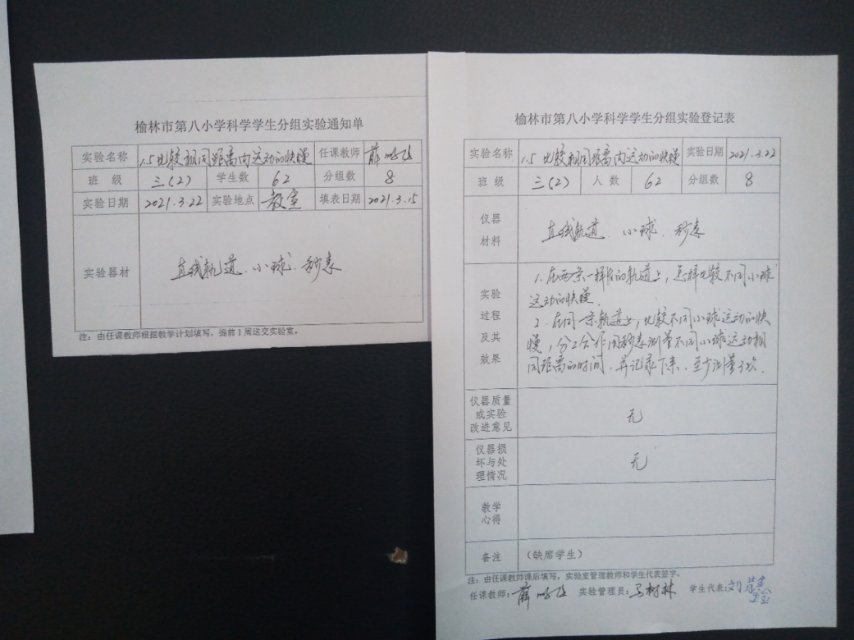 榆林市第八小学科学学生分组实验通知单
实验名称 1.5比较相同距离内运动的快慢 任课教师 薛
班 级 三(2) 学生数 62 分组数 8
实验日期 2021.3.22 实验地点 教室 填表日期 2021.3.15
实验器材 直线轨道、小球、秒表
注：由任课教师根据教学计划填写，提前1周送交实验室。
榆林市第八小学科学学生分组实验登记表
实验名称 1.5比较相同距离内运动的快慢 实验日期 2021.3.22
班 级 三(2) 人 数 62 分组数 8
仪器
材料
直线轨道、小球、秒表
实验
过程
及其
效果
1.在两条一样长的轨道上，怎样比较不同小球
运动的快慢
2.在同一条轨道上，比较不同小球运动的快
慢，分工合作用秒表测量不同小球运动相
同距离的时间，并记录下来，至少测量3次。
仪器质量
或实验
改进意见
无
仪器损
坏与处
理情况
无
教学
心得
备注 （缺席学生）
注：由任课教师课后填写，实验室管理教师和学生代表签字。
任课教师：薛 实验管理员：马树林 学生代表：刘